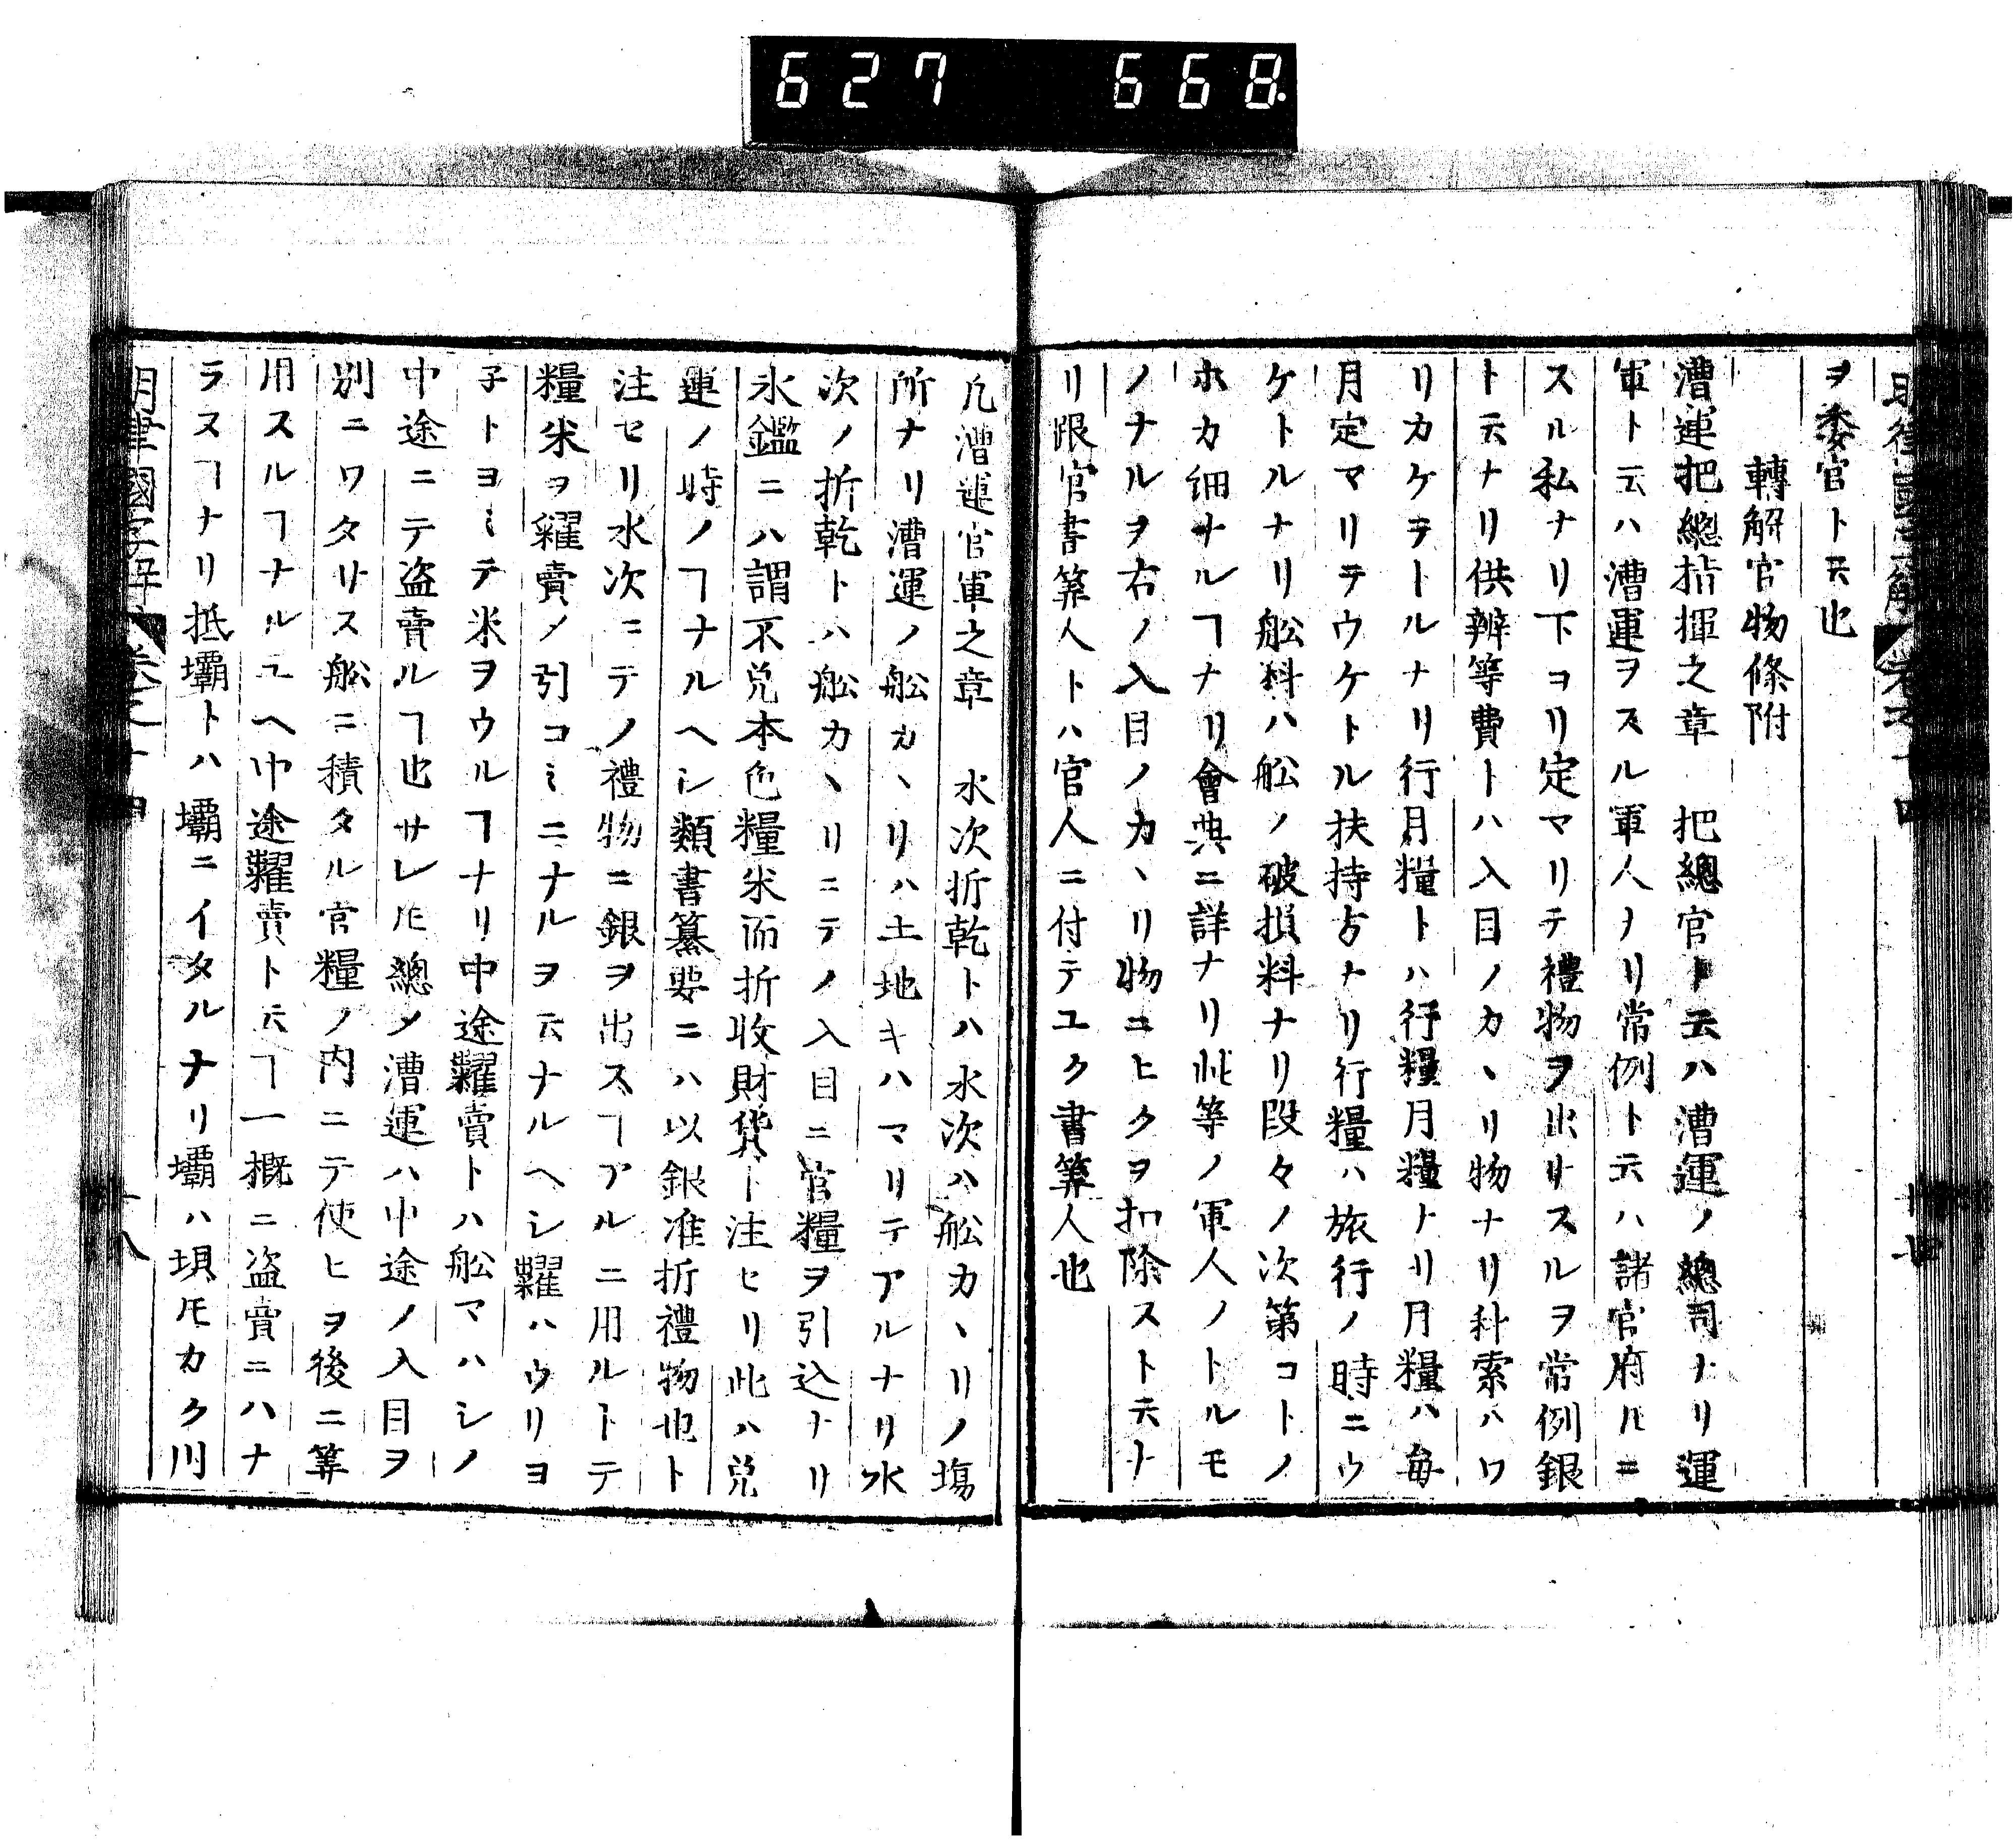 627 668.
ヲ委官ト云也
轉解官物條附
漕運把總指揮之章 把總官ト云ハ漕運ノ總司ナリ運
軍ト云ハ漕運ヲスル軍人ナリ常例ト云ハ諸官府ヘニ
スル私ナリ下ヨリ定マリテ禮物ヲ出サスルヲ常例銀
ト云ナリ供辨等費トハ入目ノカヽリ物ナリ科索ハワ
リカケヲトルナリ行月糧トハ行糧月糧トナリ月糧ハ毎
月定マリテウケトル扶持方ナリ行糧ハ旅行ノ時ニウ
ケトルナリ舩料ハ舩ノ破損料ナリ段々ノ次第コトノ
ホカ細ナルヿナリ會典ニ詳ナリ此等ノ軍人ノトルモ
ノナルヲ右ノ入目ノカヽリ物ニヒクヲ扣除スト云ナ
リ跟官書筭人トハ官人ニ付テユク書筭人也
凡漕運官軍之章 水次折乾トハ水次ハ舩カヽリノ塲
所ナリ漕運ノ舩カヽリハ土地キハマリテアルナリ水
次ノ折乾トハ舩カヽリニテノ入目ニ官糧ヲ引込ナリ
氷鑑ニハ謂不兌本色糧米而折收財貨ト注セリ此ハ兌
運ノ時ノヿナルヘシ類書纂要ニハ以銀准折禮物也ト
注セリ水次ニテノ禮物ニ銀ヲ出スヿアルニ用ルトテ
糧米ヲ糶賣メ引コミニナルヲ云ナルヘシ糶ハウリヨ
子トヨミテ米ヲウルヿナリ中途糶賣トハ舩マハシノ
中途ニテ盗賣ルヿ也サレ𪜈總メ漕運ハ中途ノ入目ヲ
別ニワタサス舩ニ積タル官糧ノ内ニテ使ヒヲ後ニ筭
用スルヿナルユヘ中途糶賣ト云ヿ一概ニ盗賣ニハナ
ラヌヿナリ抵壩トハ壩ニイタルナリ壩ハ垻𪜈カク川
明律國字解 卷之十四 十八